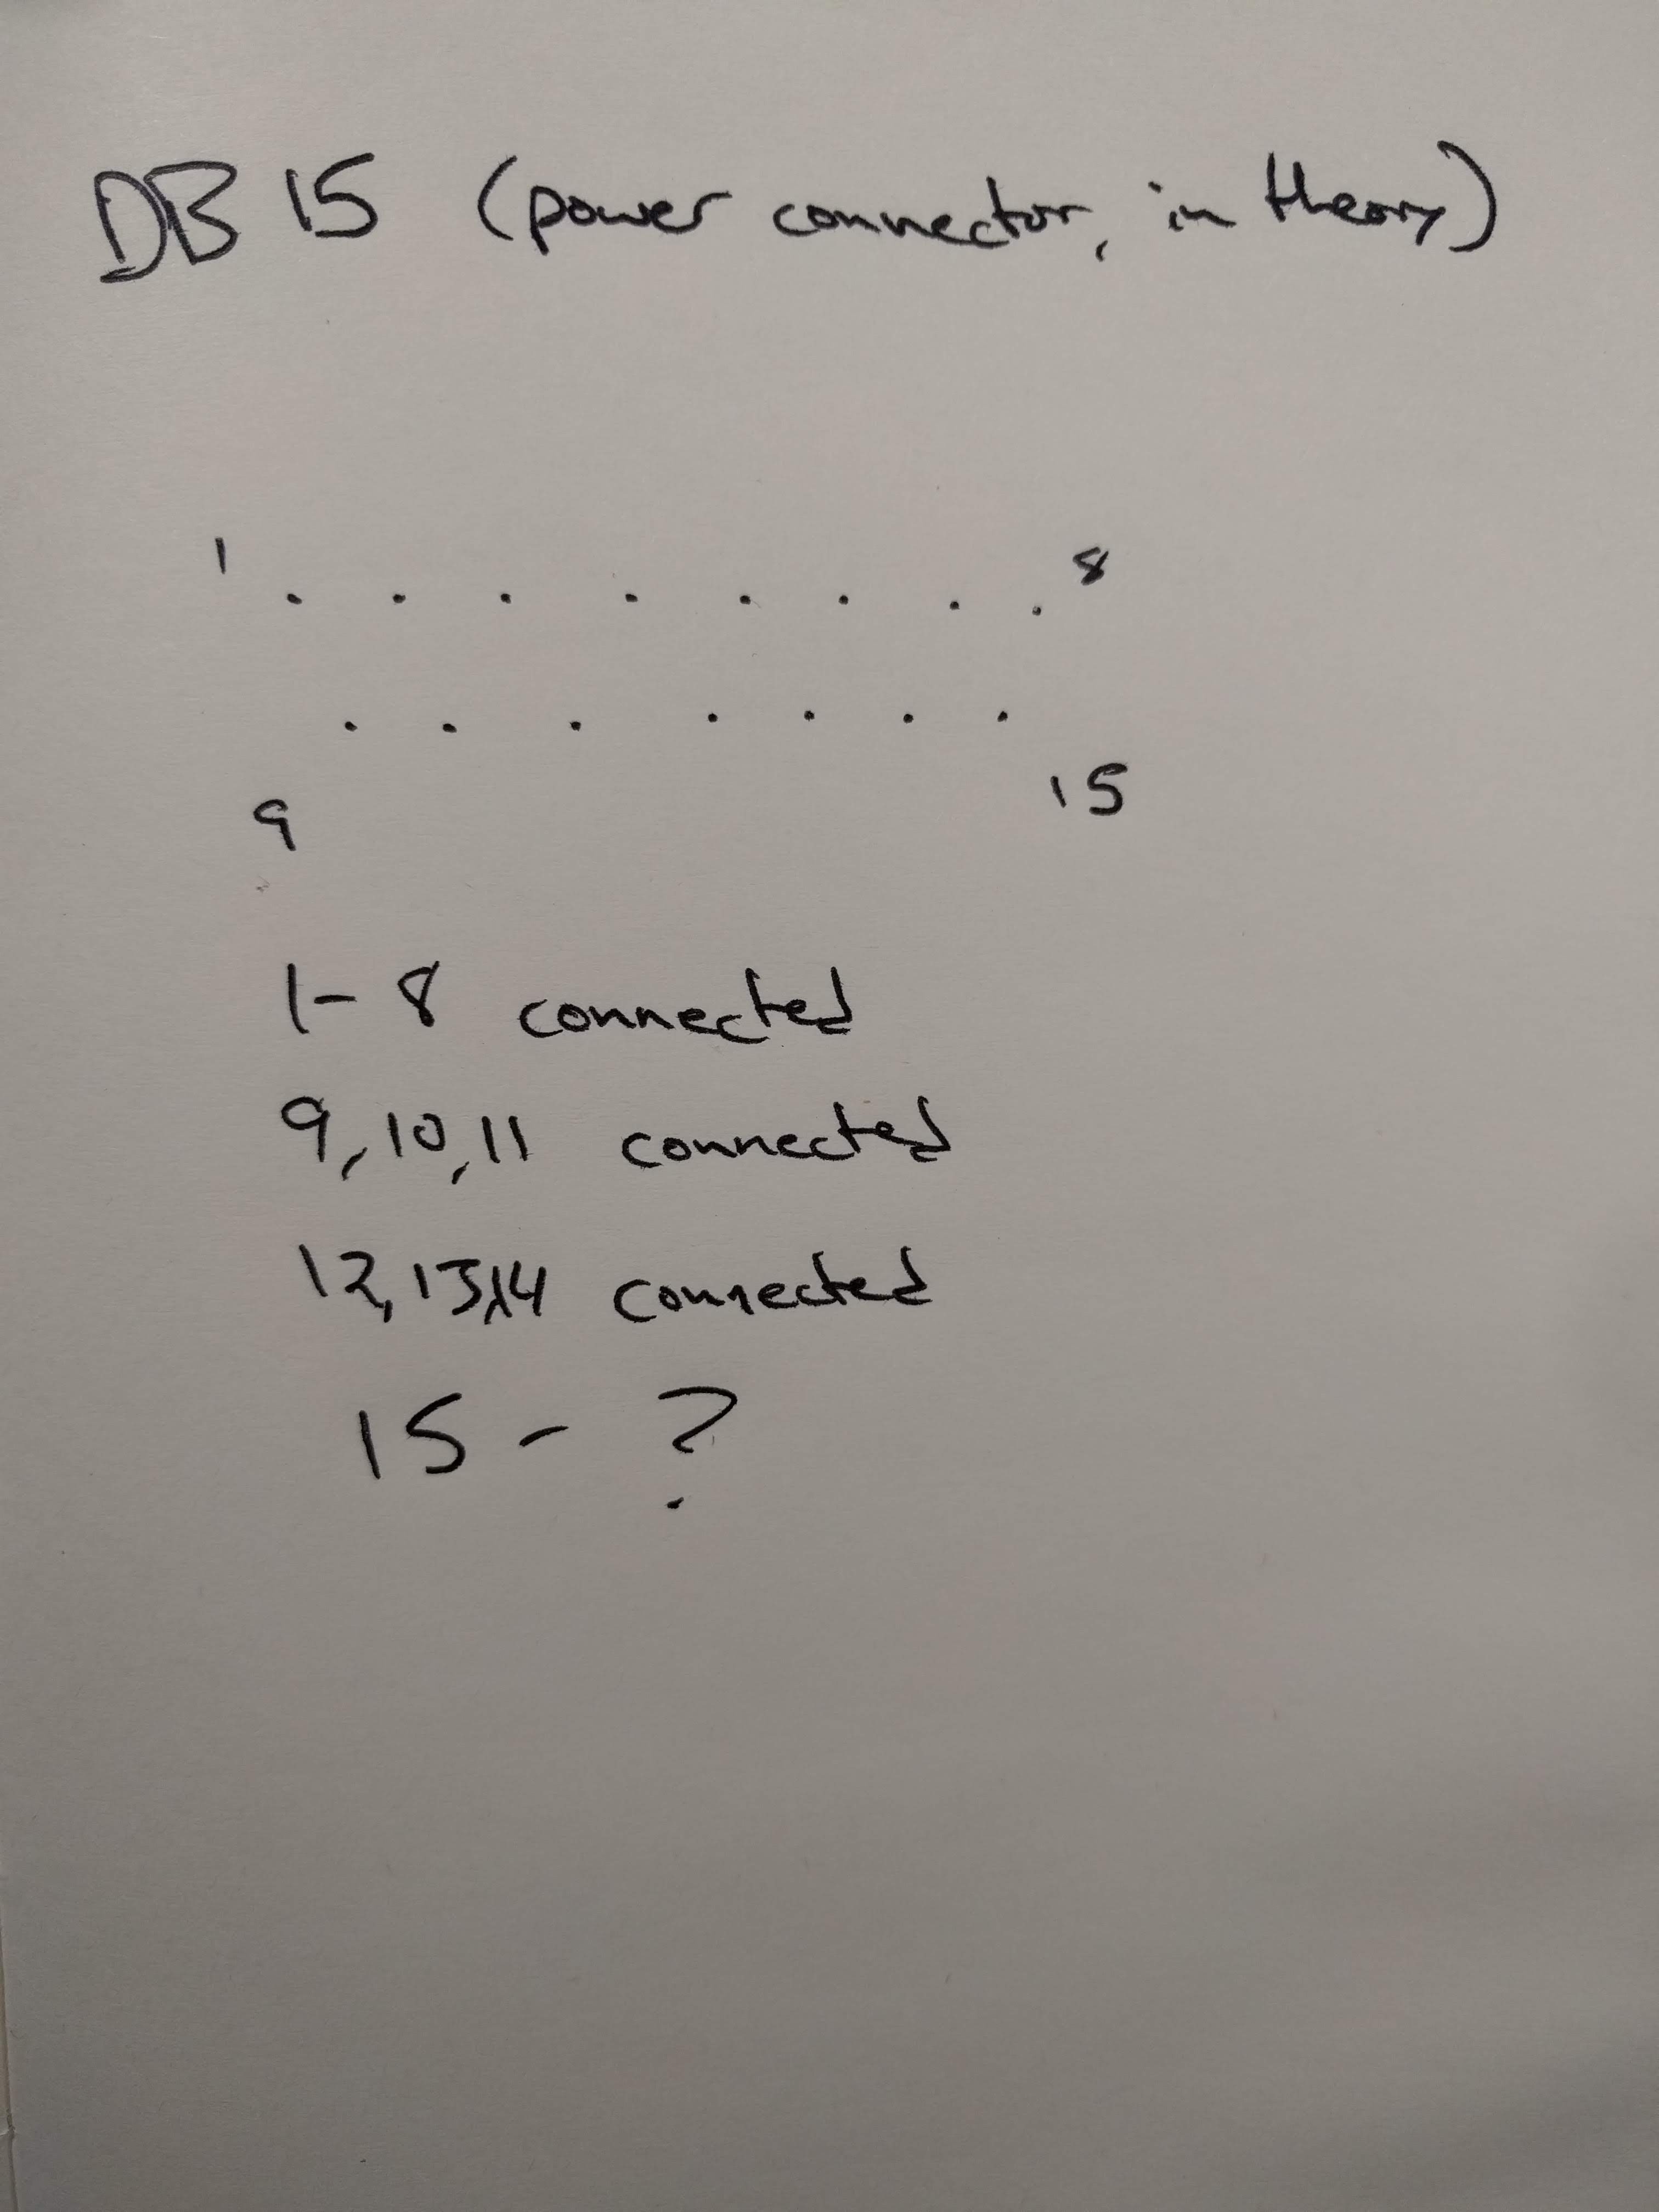 DB 15 (power connector, in theory)
1 8
9 15
1 - 8 connected
9, 10, 11 connected
12, 13, 14 connected
15 - ?